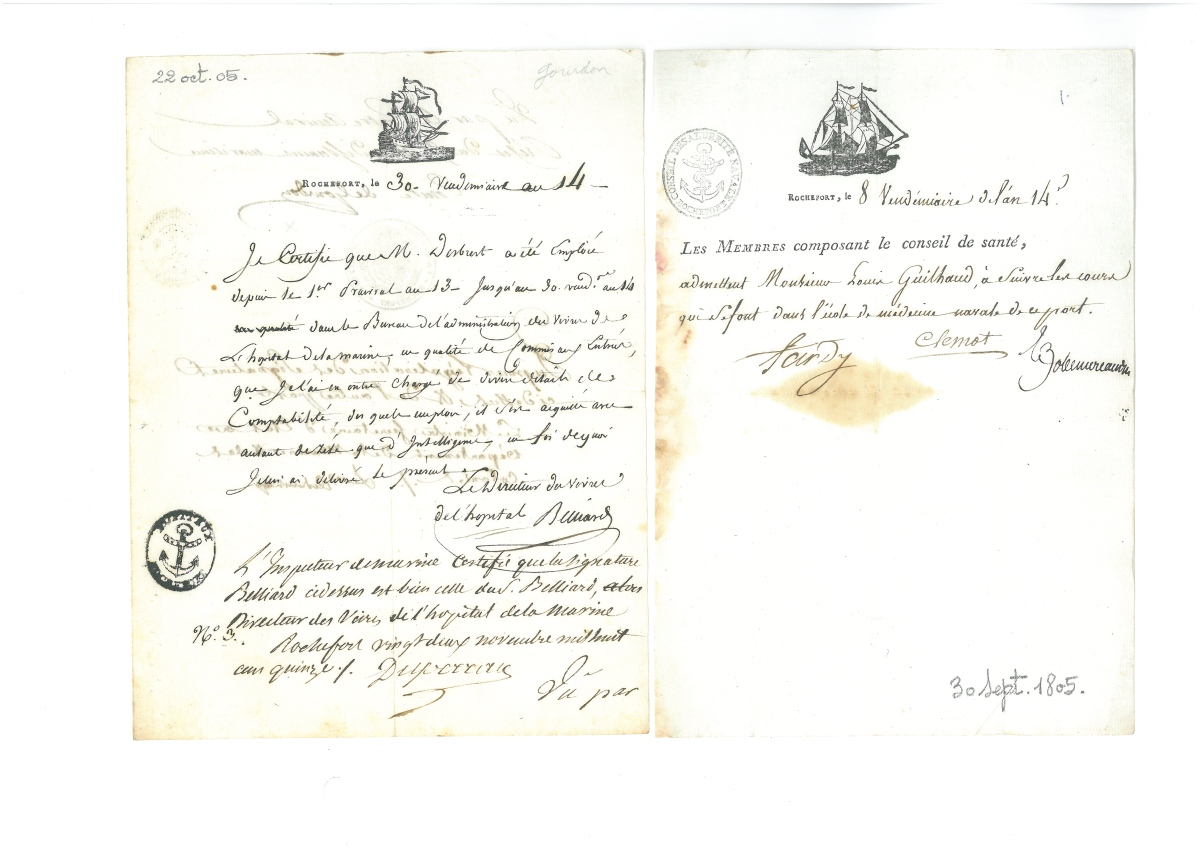 22 oct. 05.
Gourdon
ROCHEFORT, le 30 Vendémiaire au 14
Je Certifie que M. a été Employé
depuis le 1.er Prairial au 13 Jusqu'au 30. vend.re au 14
dans le Bureau de l'administration des vivres de
L'hôpital de la marine, en qualité de Commis aux Entrées,
que Je l'ai en outre Chargé de divers détails de
Comptabilité, des quels emplois, il s'est acquitté avec
autant de zèle que d'Intelligence, en foi de quoi
Je lui ai délivré le présent
Le Directeur des vivres
de l'hopital Belliard
HOPITAUX
L'Inspecteur de marine Certifie que la signature
Belliard ci dessus est bien celle du S. Belliard, alors
Directeur des Vivres de l'hopital de la Marine
N.o 3.
Rochefort vingt deux novembre mil huit
cens quinze /.
Vû par
1.
CONSEIL DE SALUBRITÉ NAVALE
ROCHEFORT
ROCHEFORT, le 8 Vendémiaire de l'an 14.
LES MEMBRES composant le conseil de santé,
admettent Monsieur Louis Guilhaud, à suivre les cours
qui se font dans l'école de médecine navale de ce port.
Tardy
Clemot
30 Sept. 1805.